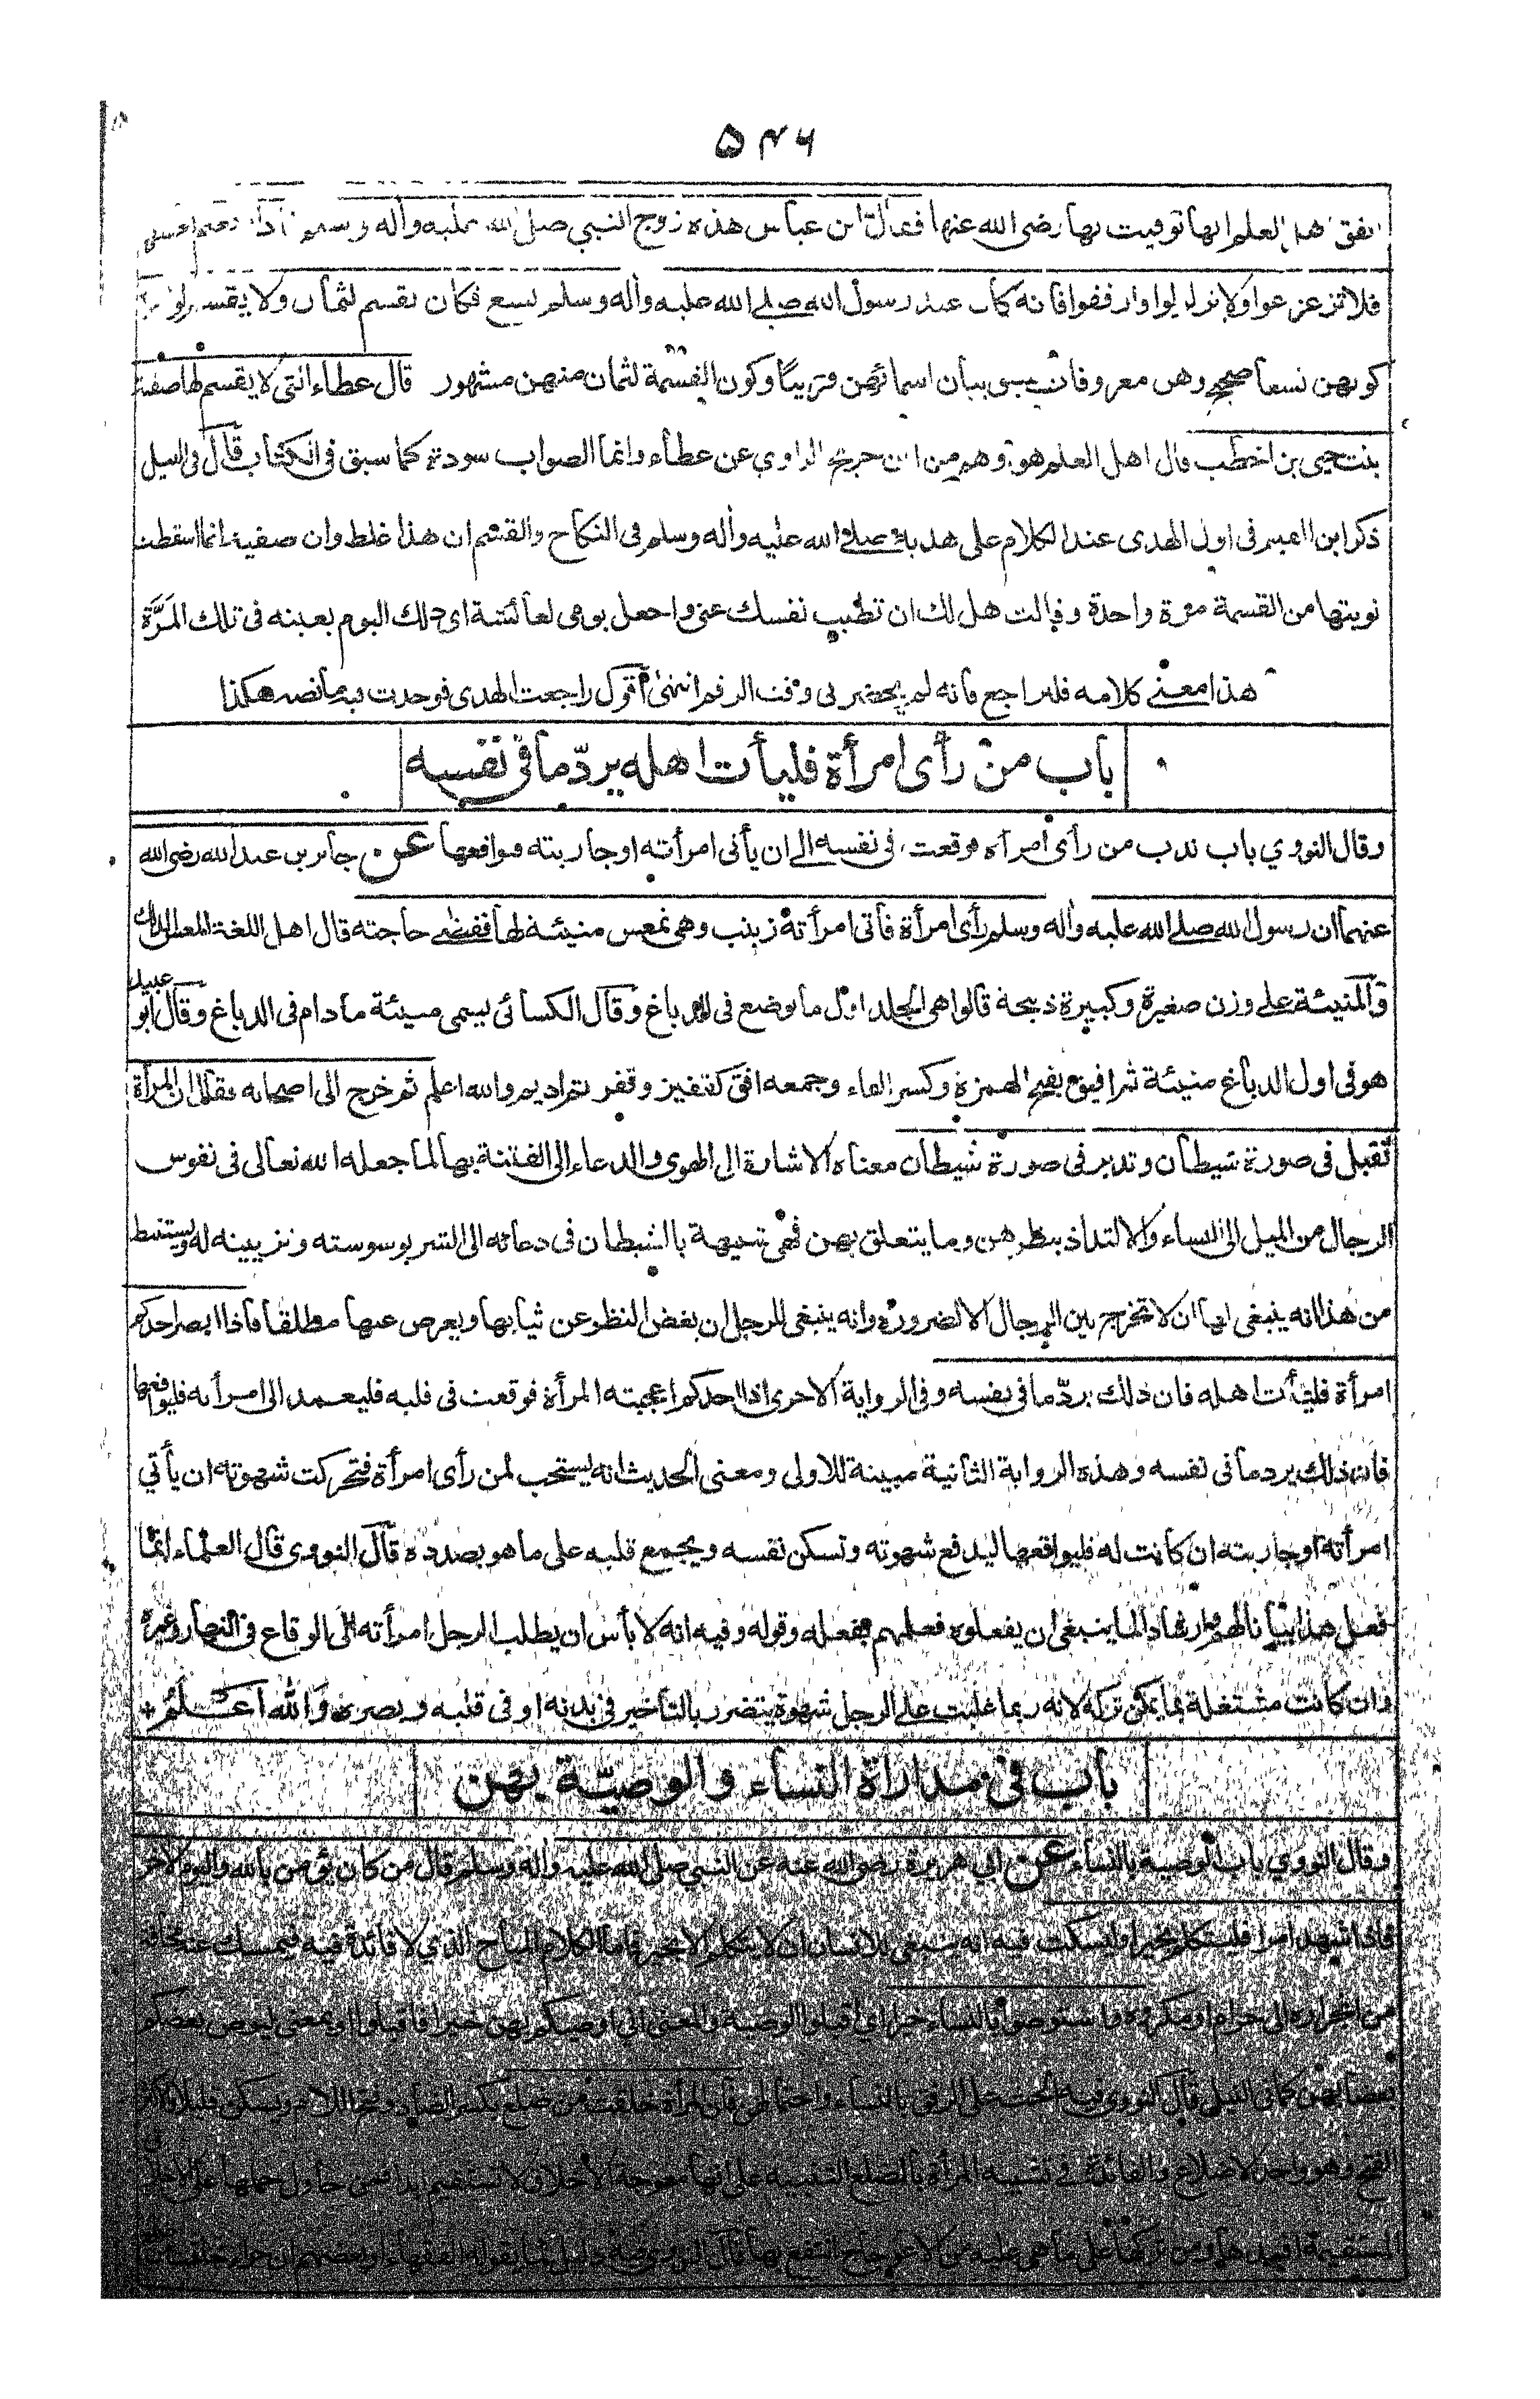 ۵۴۶
اتفق اهل العلم انها توفيت بها رضى الله عنها فقال ابن عباس هذه زوج النبي صلى الله عليه وأله وسلم فأذا رفعتم نعشها
فلا تزعزعوا ولا تزلزلوا وارفقوا فانه كأن عند رسول الله صلى الله عليه وأله وسلم تسع فكان يقسم لثمأن ولا يقسم لواحدة
كونهن تسعا صحيح وهن معروفات سبق بيان اسمائهن قريبًا وكون القسمة لثمان منهن مشهور قال عطاء التى لا يقسم لها صفية
بنت حيى بن اخطب قال اهل العلم هو وهم من ابن جريج الراوي عن عطأء وانما الصواب سودة كما سبق فى الكتأب قأل فى النيل
ذكر ابن القيم فى اول الهدى عند الكلام على هديه صلى الله عليه وأله وسلم فى النكاح والقسم ان هذا غلط وان صفية انما اسقطت
نوبتها من القسمة مرة واحدة وقالت هل لك ان تطيب نفسك عنى واجعل يومى لعأئشة اى ذلك اليوم بعينه فى تلك المَرَّة
هذا معنى كلامه فليراجع فأنه لم يحضرنى وقت الرقم انتهى أقول راجعت الهدى فوجدت فيه مأنصه هكذا
بأب من رأى امرأة فليأت اهله يردّ مأ فى نفسه
وقال النووي بأب ندب من رأى امرأه فوقعت فى نفسه الى ان يأتى امرأته او جاريته فيواقعها عن جأبر بن عبد الله رضى الله
عنهمأ ان رسول الله صلى الله عليه وأله وسلم رأى امرأة فأتى امرأته زينب وهى تمعس منيئة لها فقضى حأجته قال اهل اللغة المعس الدلك
والمنيئة على وزن صغيرة وكبيرة ذبيحة قالوا هى الجلد اول ما يوضع فى الدباغ وقأل الكسأئى يسمى منيئة مأ دام فى الدباغ وقأل ابو عبيد
هو فى اول الدبأغ منيئة ثم افيق بفتح الهمزة وكسر الفاء وجمعه افق كقفيز وقفز ثم اديم والله اعلم ثم خرج الى اصحابه فقال ان المرأة
تقبل فى صورة شيطأن وتدبر فى صورة شيطأن معناه الاشارة الى الهوى والدعاء الى الفتنة بهأ لمأ جعله الله تعألى فى نفوس
الرجال من الميل الى النساء والالتذاذ بنظرهن وما يتعلق بهن فهى شبيهة بالشيطأن فى دعائه الى الشر بوسوسته وتزيينه له ويستنبط
من هذا انه ينبغى لهأ ان لا تخرج بين الرجال الا لضرورة وانه ينبغى للرجل ان يغض النظر عن ثيابها ويعرض عنهأ مطلقا فأذا ابصر احدكم
امرأة فليأت اهله فان ذلك يردّ ما فى نفسه وفى الرواية الاخرى اذا احدكم اعجبته المرأة فوقعت فى قلبه فليعمد الى امرأته فليواقعها
فان ذلك يرد مأ فى نفسه وهذه الرواية الثانية مبينة للاولى ومعنى الحديث انه يستحب لمن رأى امرأة فتحركت شهوته ان يأتي
امرأته او جاريته ان كانت له فليواقعها ليدفع شهوته وتسكن نفسه ويجمع قلبه على ما هو بصدده قأل النووى قال العلماء انما
فعل هذا بيأنا لهم وارشادا لما ينبغى ان يفعلوه فعلمهم بفعله وقوله وفيه انه لا بأس ان يطلب الرجل امرأته الى الوقاع فى النهار وغيره
وان كانت مشتغلة بما يمكن تركه لانه ربما غلبت على الرجل شهوة يتضرر بالتأخير فى بدنه او فى قلبه وبصره والله اعلم+
بأب فى مداراة النساء والوصيّة بهن
وقال النووي بأب الوصية بالنساء عن ابى هريرة رضى الله عنه عن النبي صلى الله عليه وأله وسلم قال من كان يؤمن بألله واليوم الأخر
فأذا شهد امرا فليتكلم بخير او ليسكت فيه انه ينبغى للانسأن ان لا يتكلم الا بخير فأمأ الكلام المبأح الذي لا فائدة فيه فيمسك عنه مخافة
من انجراره الى حرام او مكروه واستوصوا بألنساء خيرا اي اقبلوا الوصية والمعنى انى اوصيكم بهن خيرا فاقبلوا او بمعنى ليوص بعضكم
بعضا بهن كمأ فى النيل قأل النووى فيه الحث على الرفق بالنساء واحتمالهن فأن المرأة خلقت من ضلع بكسر الضاد وفتح اللام ويسكن قليلا والاكثر
الفتح وهو واحد الاضلاع والفائدة فى تشبيه المرأة بألضلع التنبيه على انها معوجة الاخلاق لا تستقيم ابدا فمن حأول حملها على الاخلاق
المستقيمة افسدها ومن تركها على مأ هى عليه من الاعوجأج انتفع بهأ قأل النووى